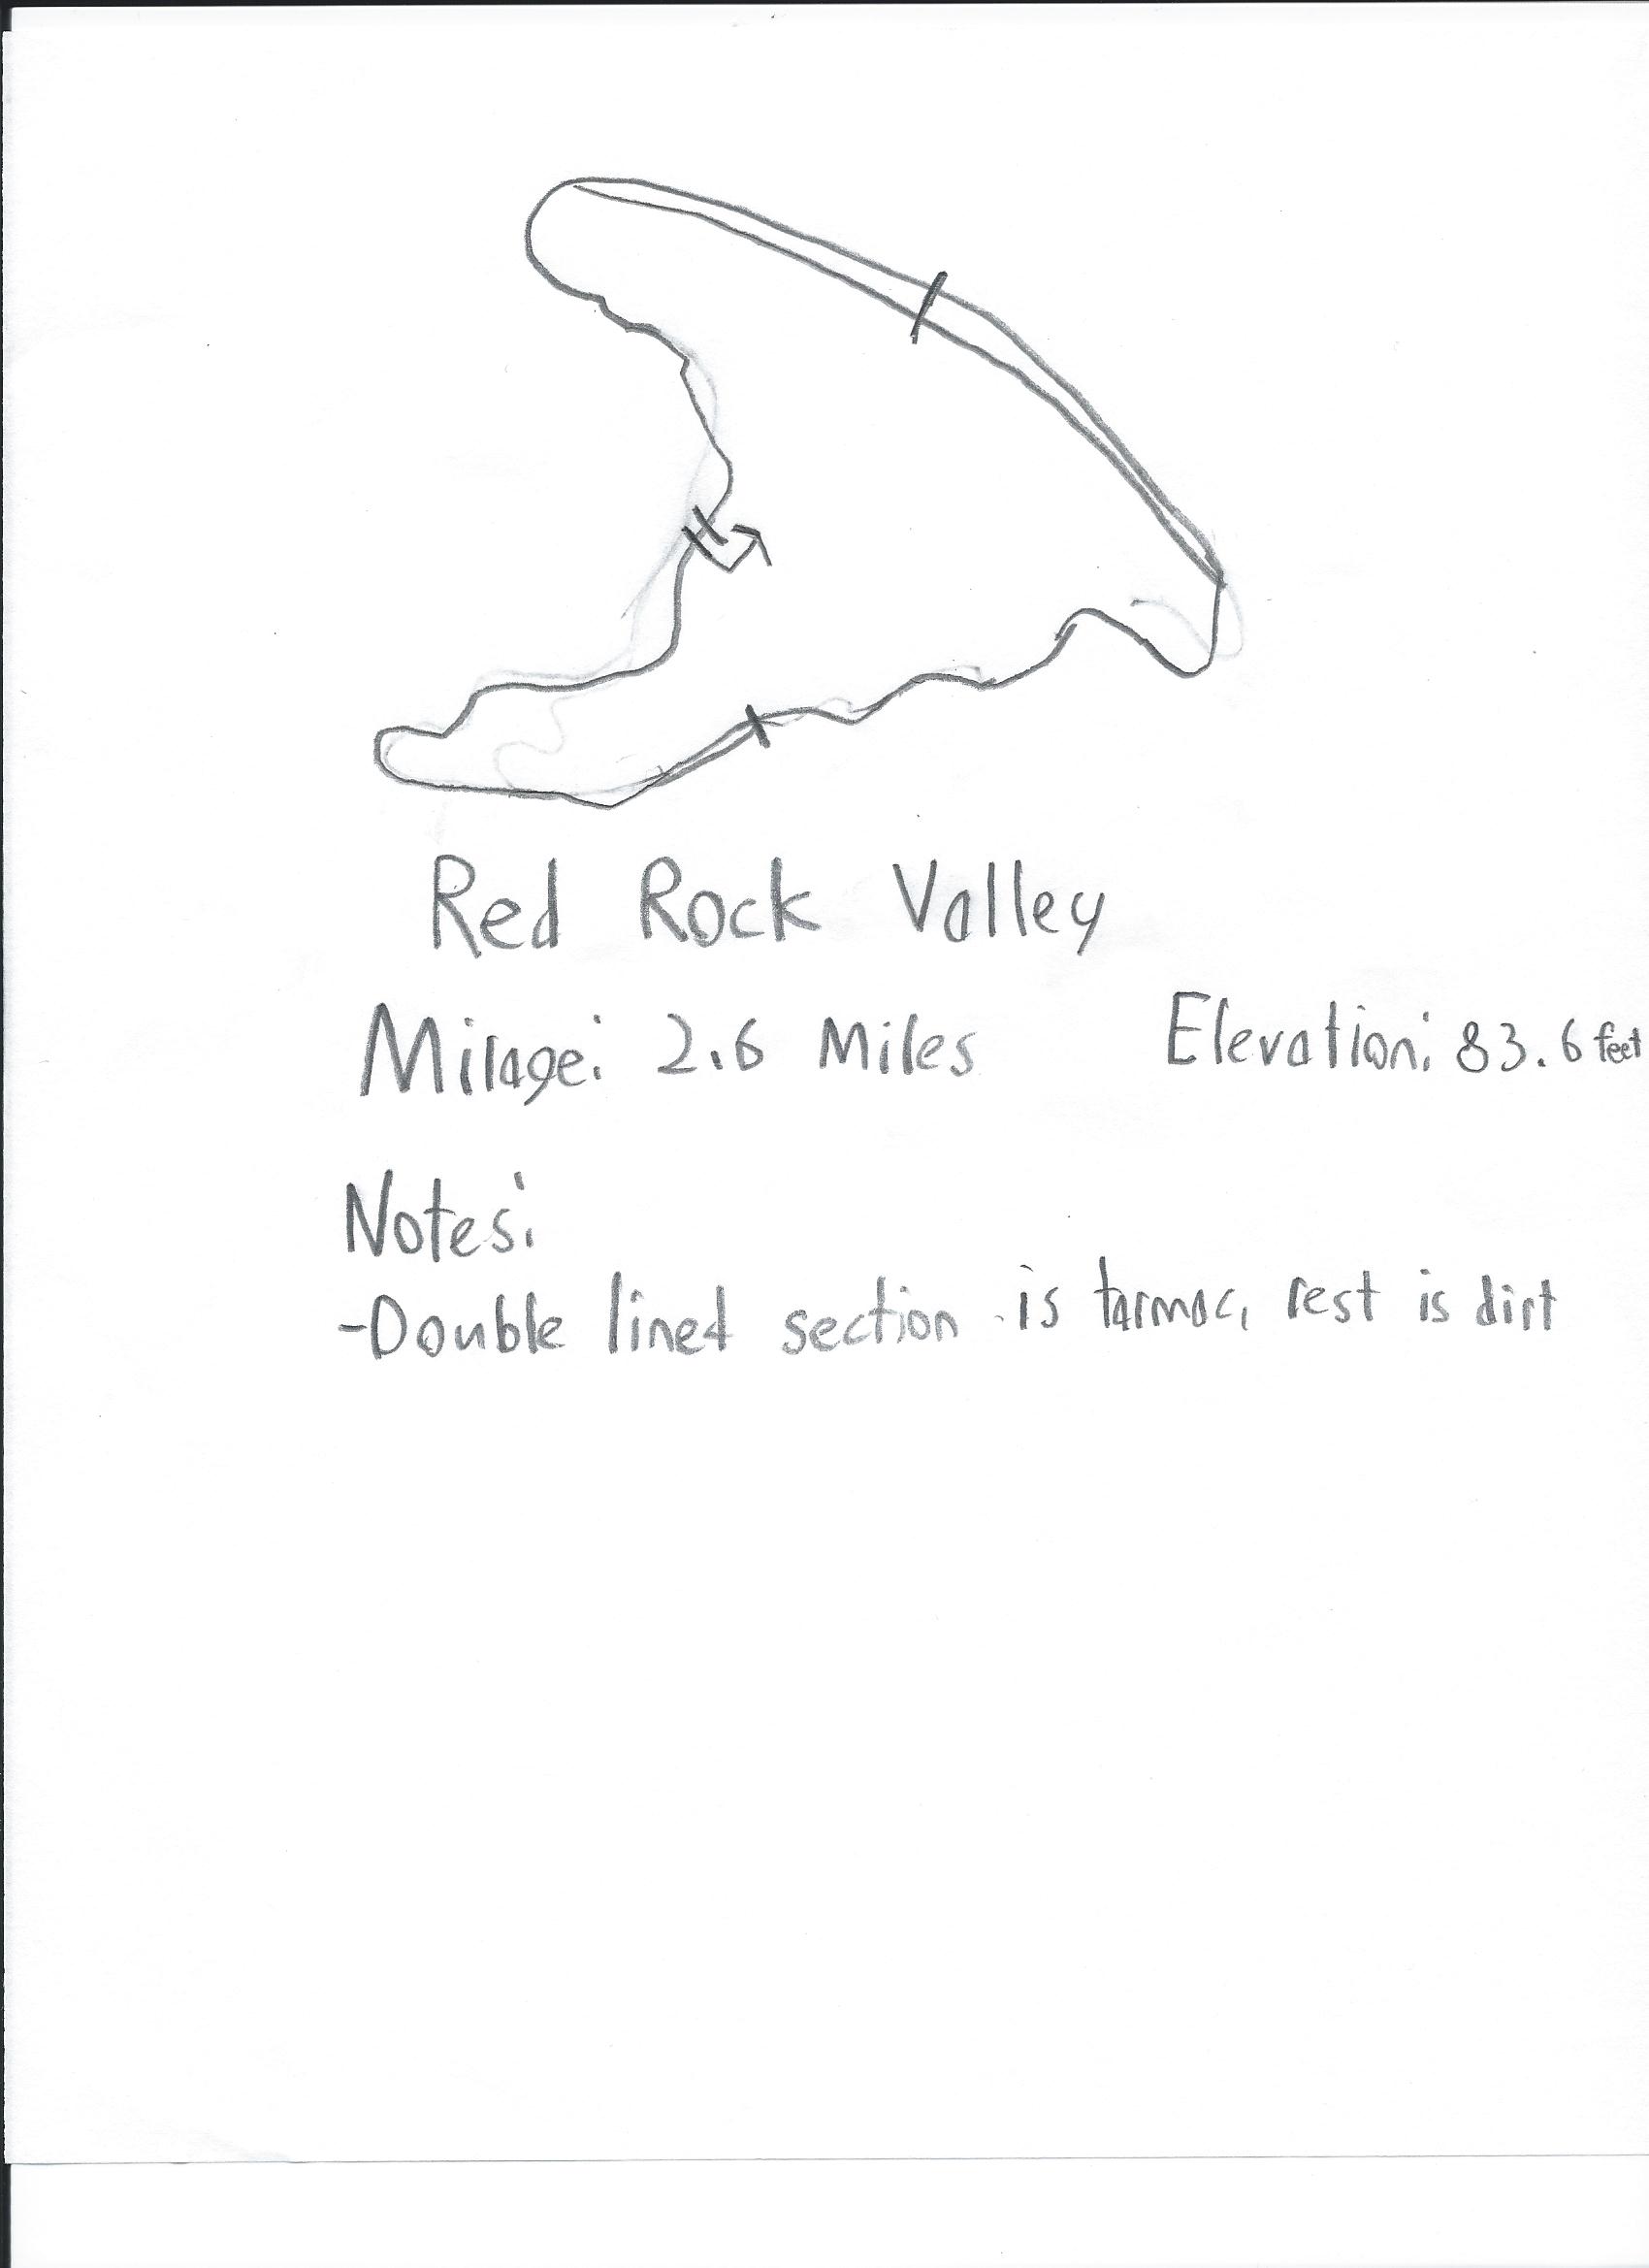 Red Rock Valley
Milage: 2.6 Miles Elevation: 83.6 feet
Notes:
-Double lined section is tarmac, rest is dirt